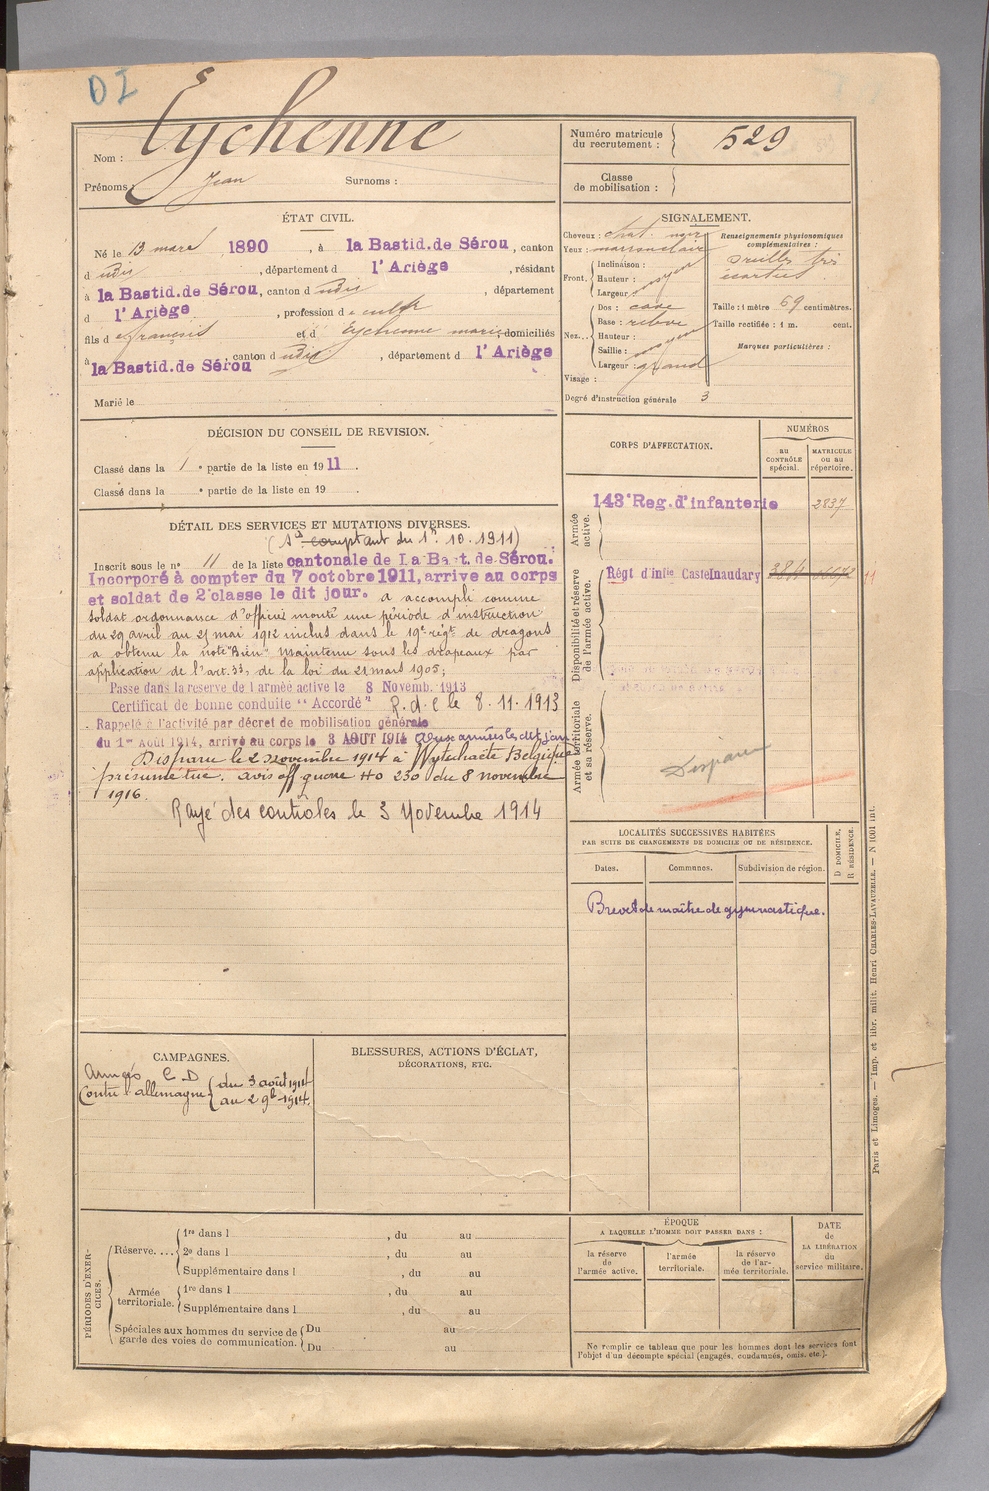 DI
Nom : Eychenne
Prénoms : Jean Surnoms :
Numéro matricule du recrutement : 529
Classe de mobilisation :
ÉTAT CIVIL.
Né le 13 mars 1890, à la Bastid.de Sérou, canton
d udis, département d l'Ariège, résidant
à la Bastid.de Sérou, canton d udis, département
d l'Ariège, profession d e cultr
fils d e françois et d Eychenne marie, domiciliés
à la Bastid.de Sérou canton d udis, département d l'Ariège
Marié le
SIGNALEMENT.
Cheveux : chat. noir
Yeux : marron clair
Front. Inclinaison :
Hauteur : moyen
Largeur :
Nez... Dos : cave
Base : relevé
Hauteur :
Saillie : moyen
Largeur : grand
Visage :
Degré d'instruction générale 3
Renseignements physionomiques complémentaires :
oreilles très
écartées
Taille : 1 mètre 69 centimètres.
Taille rectifiée : 1 m. cent.
Marques particulières :
DÉCISION DU CONSEIL DE REVISION.
Classé dans la 1 e partie de la liste en 1911.
Classé dans la e partie de la liste en 19
DÉTAIL DES SERVICES ET MUTATIONS DIVERSES.
comptant du 1er 10.1911)
Inscrit sous le no 11 de la liste cantonale de La Bast. de Sérou.
Incorporé à compter du 7 octobre 1911, arrive au corps
et soldat de 2e classe le dit jour. a accompli comme
soldat ordonnance d'officier monté une période d'instruction
du 29 avril au 21 mai 1912 inclus dans le 19e régt de dragons
a obtenu la note "Bien" maintenu sous les drapeaux par
application de l'art.33, de la loi du 21 mars 1905;
Passe dans la reserve de l'armée active le 8 Novemb. 1913
Certificat de bonne conduite "Accordé" R.d.C le 8.11.1913
Rappelé à l'activité par décret de mobilisation générale
du 1er Août 1914, arrivé au corps le 3 AOUT 1914 aux armées le dit jour
Disparu le 2 novembre 1914 à Wytschaëte Belgique
présumé tué. avis off guerre HO 230 du 8 novembre
1916.
Rayé des contrôles le 3 Novembre 1914
CORPS D'AFFECTATION.
NUMÉROS
au CONTRÔLE spécial.
MATRICULE ou au répertoire.
Armée active.
143e Reg. d'infanterie 2837
Disponibilité et réserve de l'armée active.
Régt d'infie Castelnaudary
Armée territoriale et sa réserve.
Disparu
LOCALITÉS SUCCESSIVES HABITÉES
PAR SUITE DE CHANGEMENTS DE DOMICILE OU DE RÉSIDENCE.
D DOMICILE, R RÉSIDENCE.
Dates. Communes. Subdivision de région.
Brevet de maître de gymnastique.
CAMPAGNES.
Contre l'allemagne
du 3 août 1914
au 2 9bre 1914.
BLESSURES, ACTIONS D'ÉCLAT,
DÉCORATIONS, ETC.
PÉRIODES D'EXERCICES.
Réserve.... 1re dans l , du au
2e dans l , du au
Supplémentaire dans l , du au
Armée territoriale. 1re dans l , du au
Supplémentaire dans l , du au
Spéciales aux hommes du service de garde des voies de communication. Du au
Du au
ÉPOQUE
A LAQUELLE L'HOMME DOIT PASSER DANS :
la réserve de l'armée active.
l'armée territoriale.
la réserve de l'armée territoriale.
DATE de LA LIBÉRATION du service militaire.
Ne remplir ce tableau que pour les hommes dont les services font
l'objet d'un décompte spécial (engagés, condamnés, omis, etc.).
Paris et Limoges. — Imp. et libr. milit. Henri CHARLES-LAVAUZELLE. — N 1001 int.